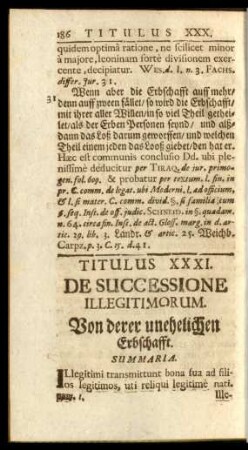 186 TITULUS XXX.
quidem optimâ ratione, ne scilicet minor
à majore, leoninam fortè divisionem exer-
cente, decipiatur. WES. d. l. n. 3. FACHS.
differ. Jur. 31.
31 Wenn aber die Erbschafft auff mehr/
denn auff zween fället/ so wird die Erbschafft/
mit ihrer aller Willen/in so viel Theil gethei-
let/als der Erben Personen seynd/ und alß-
dann das Loß darum geworffen/ und welchen
Theil einem jeden das Looß giebet/den hat er.
Hæc est communis conclusio Dd. ubi ple-
nissimè deducitur per TIRAQ. de jur. primo-
gen. fol. 609. & probatur per textum. l. fin. in
pr. C. comm. de legat. ubi Moderni. l. ad officium,
& l. si mater. C. comm. divid. §. si familia cum
§. seq. Inst. de off. judic. SCHNEID. in §. quædam.
n. 64. circa fin. Inst. de act. Gloss. marg. in d. ar-
tic. 29. lib. 3. Landr. & artic. 25. Weichb.
Carpz. p. 3. C. 15. d. 41.
TITULUS XXXI.
DE SUCCESSIONE
ILLEGITIMORUM.
Von derer unehelichen
Erbschafft.
SUMMARIA.
ILlegitimi transmittunt bona sua ad fili-
os legitimos, uti reliqui legitimè nati.
num. 1. Ille-